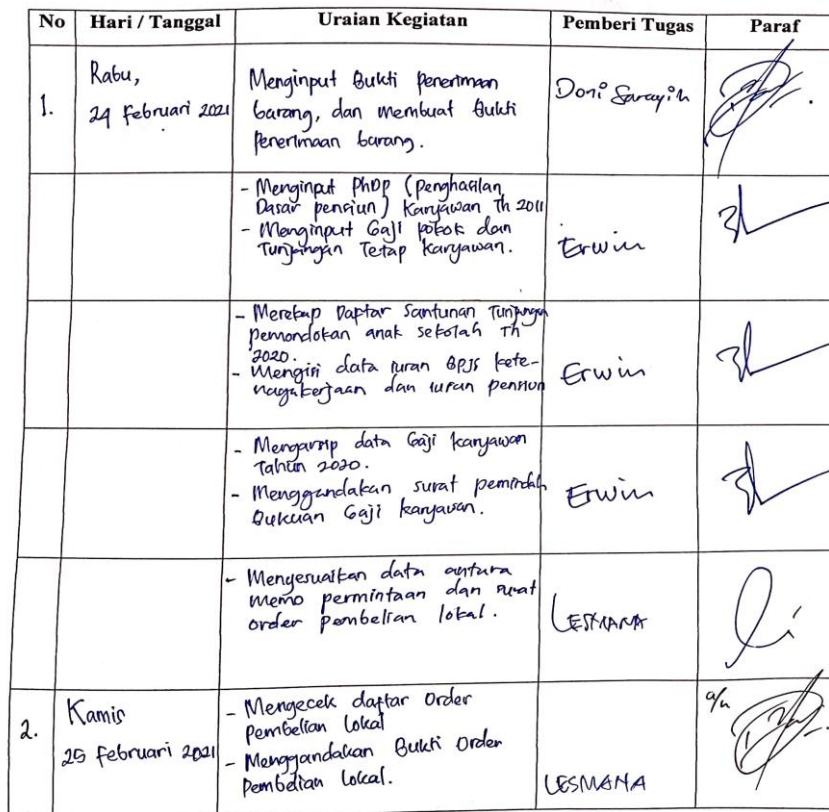 No Hari / Tanggal Uraian Kegiatan Pemberi Tugas Paraf
1. Rabu,
24 Februari 2021
Menginput Bukti Penerimaan
barang, dan membuat Bukti
Penerimaan barang.
Doni
- Menginput PhDP (Penghasilan
Dasar pensiun) Karyawan Th 2011
- Menginput Gaji pokok dan
Tunjangan Tetap karyawan.
Erwin
- Merekap Daptar Santunan Tunjangan
pemondokan anak sekolah Th
2020.
- Mengisi data iuran BPJS kete-
nagakerjaan dan iuran pensiun
Erwin
- Mengarsip data Gaji karyawan
Tahun 2020.
- Menggandakan surat pemindah
Bukuan Gaji karyawan.
Erwin
- Menyesuaikan data antara
memo permintaan dan surat
order pembelian lokal.
LESMANA
2. Kamis
25 Februari 2021
- Mengecek daftar Order
Pembelian Lokal
- Menggandakan Bukti Order
Pembelian Lokal.
LESMANA
a/n